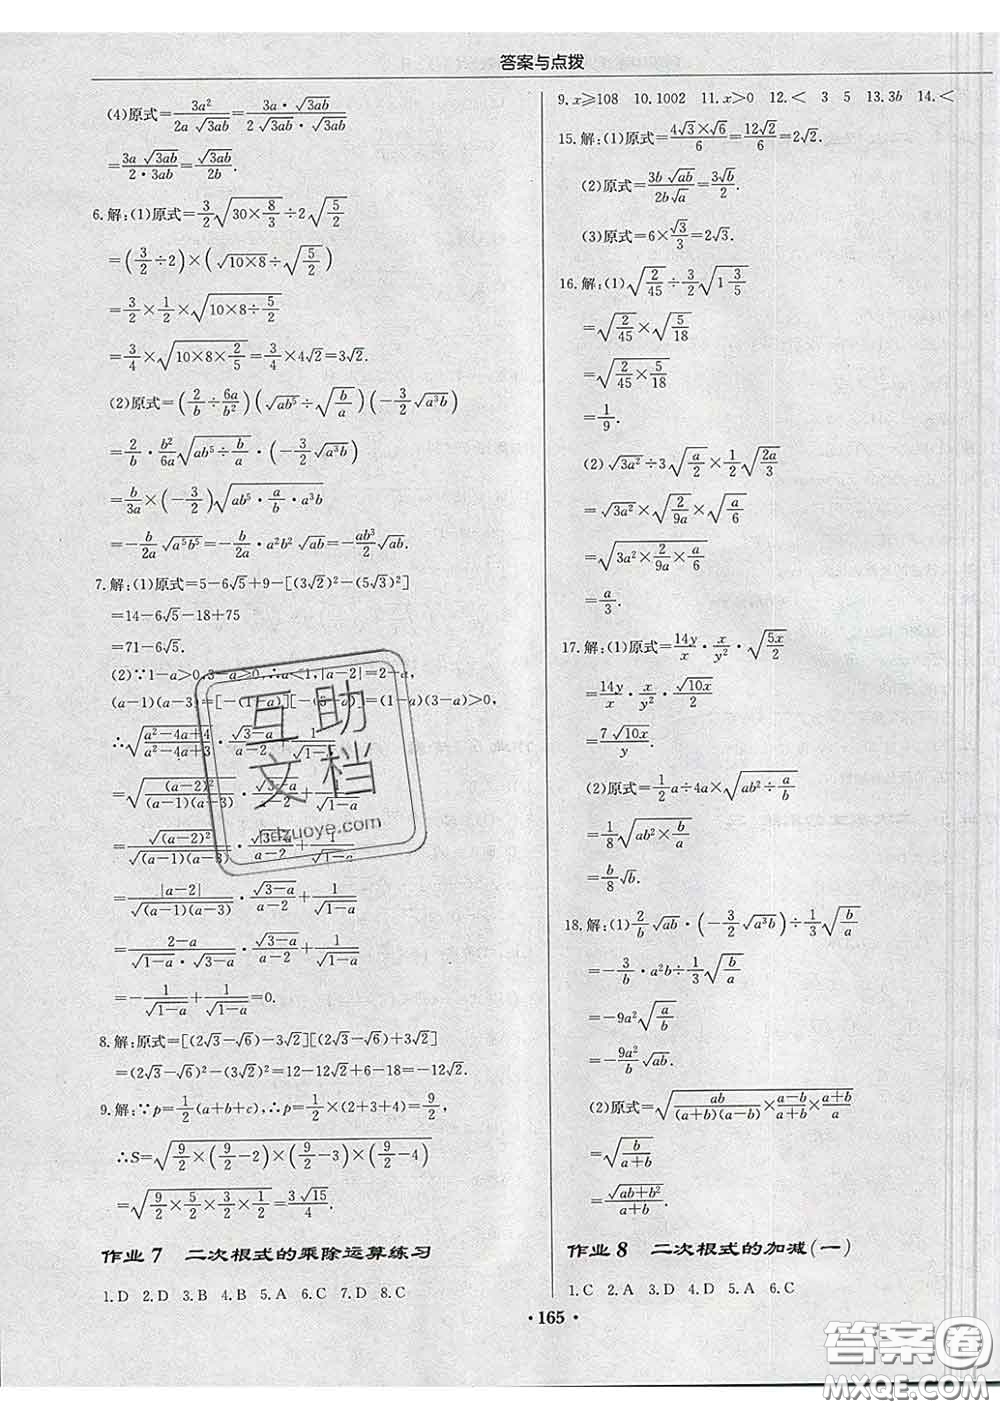 答案与点拨
(4)原式=3a²/(2a√(3ab))=(3a·√(3ab))/(2√(3ab)·√(3ab))
=(3a√(3ab))/(2·3ab)=√(3ab)/(2b).
6.解:(1)原式=3/2√(30×8/3)÷2√(5/2)
=(3/2÷2)×(√(10×8)÷√(5/2))
=3/2×1/2×√(10×8÷5/2)
=3/4×√(10×8×2/5)=3/4×4√2=3√2.
(2)原式=(2/b÷6a/b²)(√(ab⁵)÷√(b/a))(-3/2√(a³b))
=2/b·b²/6a√(ab⁵÷b/a)·(-3/2√(a³b))
=b/3a×(-3/2)√(ab⁵·a/b·a³b)
=-b/2a√(a⁵b⁵)=-b/2a·a²b²√(ab)=-ab³/2√(ab).
7.解:(1)原式=5-6√5+9-[(3√2)²-(5√3)²]
=14-6√5-18+75
=71-6√5.
(2)∵1-a>0,3-a>0,∴a<1,|a-2|=2-a,
(a-1)(a-3)=[-(1-a)][-(3-a)]=(1-a)(3-a)>0,
∴√((a²-4a+4)/(a²-4a+3))·√(3-a)/(a-2)+1/√(1-a)
=√((a-2)²/((a-1)(a-3)))·√(3-a)/(a-2)+1/√(1-a)
=√((a-2)²)/√((a-1)(a-3))·√(3-a)/(a-2)+1/√(1-a)
=|a-2|/√((a-1)(a-3))·√(3-a)/(a-2)+1/√(1-a)
=(2-a)/(√(1-a)·√(3-a))·√(3-a)/(a-2)+1/√(1-a)
=-1/√(1-a)+1/√(1-a)=0.
8.解:原式=[(2√3-√6)-3√2][(2√3-√6)+3√2]
=(2√3-√6)²-(3√2)²=12-12√2+6-18=-12√2.
9.解:∵p=1/2(a+b+c),∴p=1/2×(2+3+4)=9/2,
∴S=√(9/2×(9/2-2)×(9/2-3)×(9/2-4))
=√(9/2×5/2×3/2×1/2)=3√15/4.
作业7 二次根式的乘除运算练习
1.D 2.D 3.B 4.B 5.A 6.C 7.D 8.C
9.x≥108 10.1002 11.x>0 12.< 3 5 13.3b 14.<
15.解:(1)原式=(4√3×√6)/6=12√2/6=2√2.
(2)原式=(3b√(ab))/(2b√a)=3√b/2.
(3)原式=6×√3/3=2√3.
16.解:(1)√(2/45)÷3/2√(1 3/5)
=√(2/45)×√(5/18)
=√(2/45×5/18)
=1/9.
(2)√(3a²)÷3√(a/2)×1/2√(2a/3)
=√(3a²)×√(2/9a)×√(a/6)
=√(3a²×2/9a×a/6)
=a/3.
17.解:(1)原式=14y/x·x/y²·√(5x/2)
=14y/x·x/y²·√(10x)/2
=7√(10x)/y.
(2)原式=1/2a÷4a×√(ab²÷a/b)
=1/8√(ab²×b/a)
=b/8√b.
18.解:(1)2/b√(ab)·(-3/2√(a³b))÷1/3√(b/a)
=-3/b·a²b÷1/3√(b/a)
=-9a²√(a/b)
=-9a²/b√(ab).
(2)原式=√(ab/((a+b)(a-b))×(a-b)/(a+b)×(a+b)/a)
=√(b/(a+b))
=√(ab+b²)/(a+b).
作业8 二次根式的加减(一)
1.C 2.A 3.D 4.D 5.A 6.C
·165·
互助
文档
答案圈
MXQE.COM